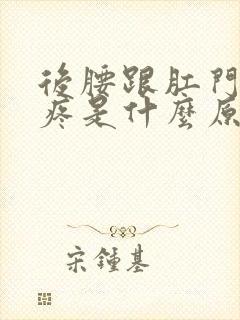 後腰跟肛門
疼是什麼原
宋鍾基